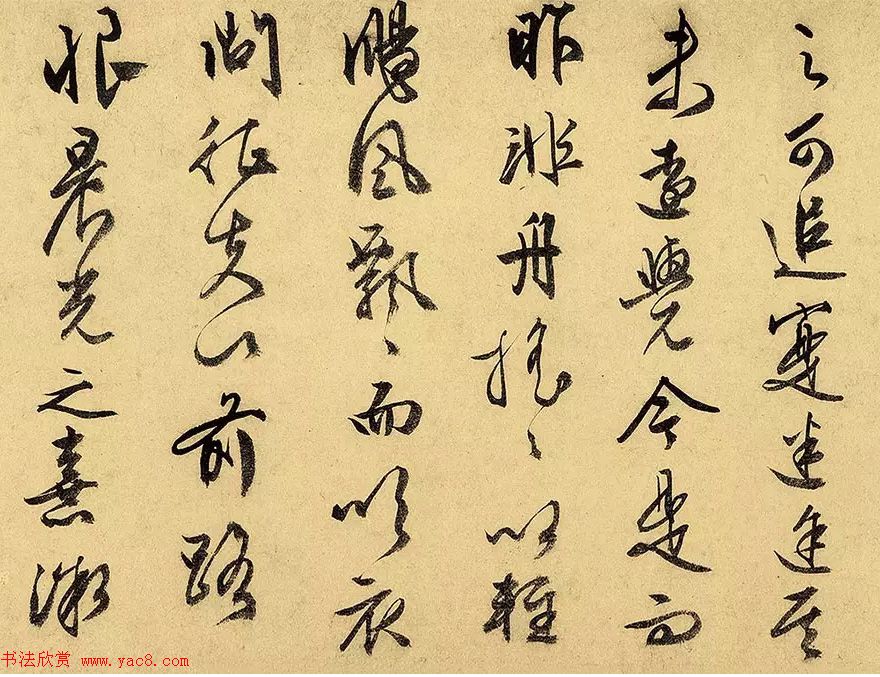 之可追寔迷途其
未遠覺今是而
昨非舟搖〻以輕
颺風飄〻而吹衣
問征夫以前路
恨晨光之熹微
书法欣赏 www.yac8.com